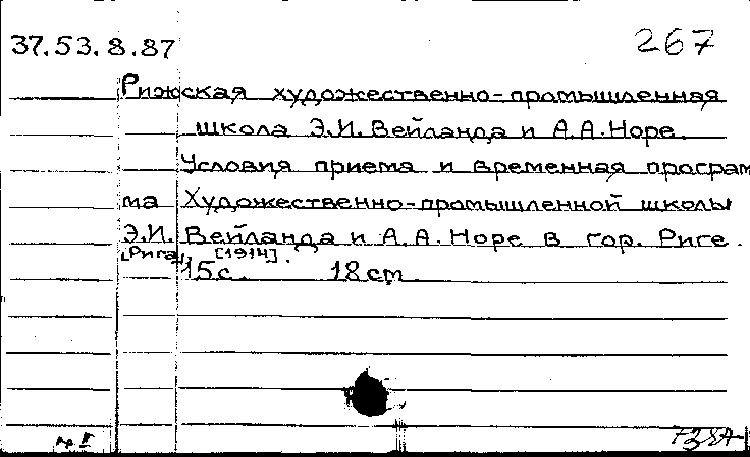 37.53.8.87 267
Рижская художественно-промышленная
школа Э.И. Вейланда и А.А. Норе.
Условия приема и временная програм
ма Художественно-промышленной школы
Э.И. Вейланда и А.А. Норе в гор. Риге.
[Рига], [1914].
15 с. 18 cm